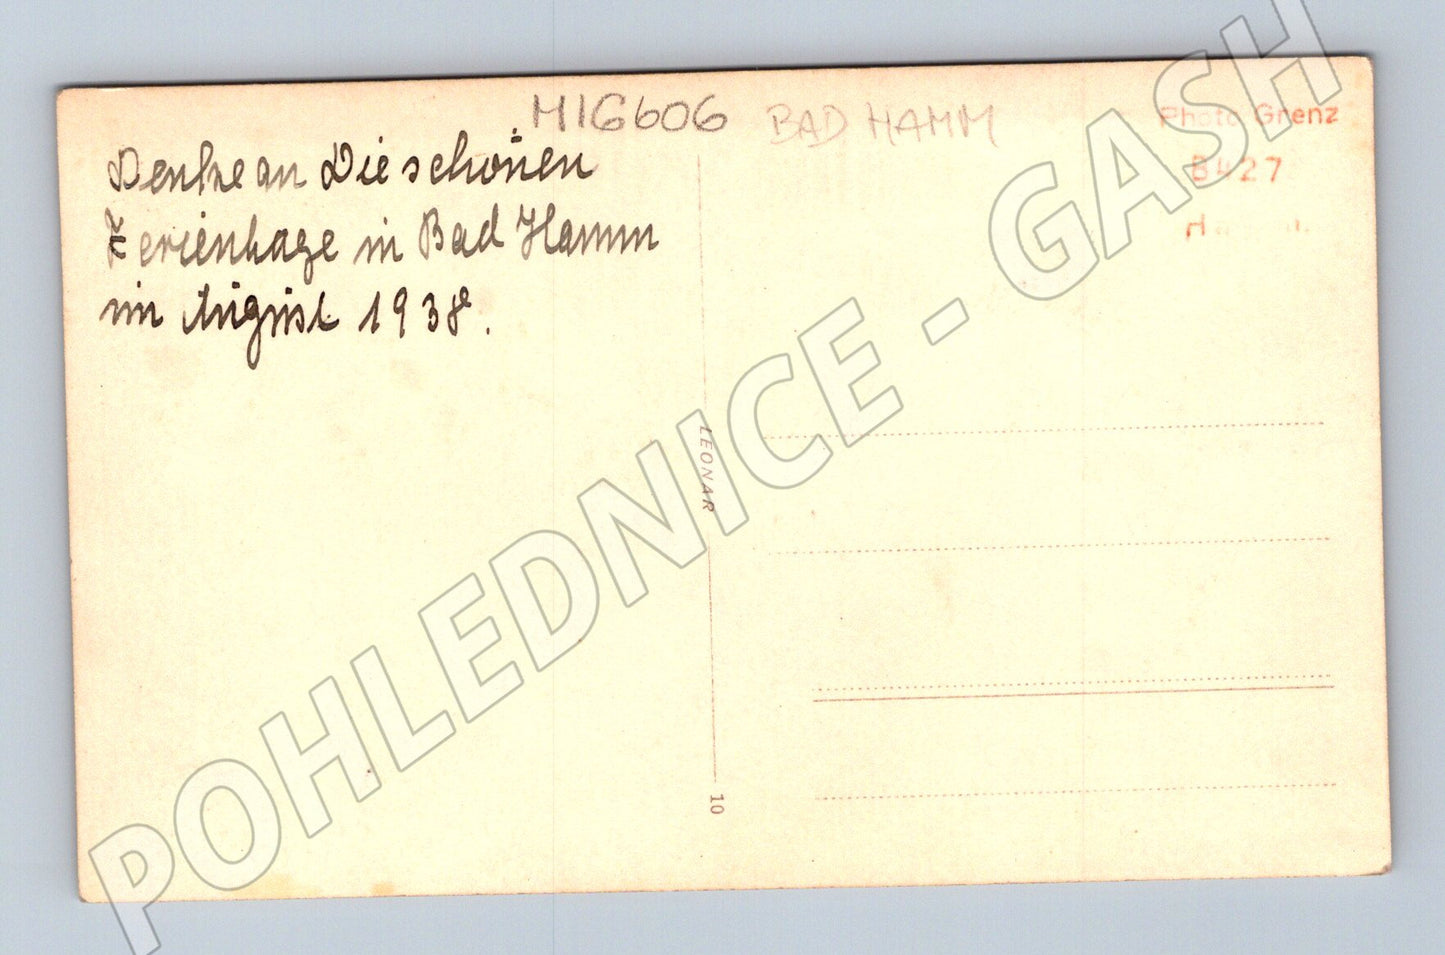 MIG606 BAD HAMM
Denke an Die schönen
Ferientage in Bad Hamm
im August 1938.
Photo Grenz
B427
LEONAR
10
POHLEDNICE - GASH